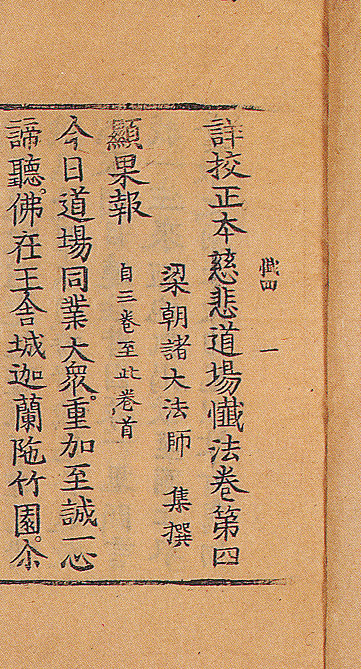 懴四 一
詳挍正本慈悲道場懴法卷第四
梁朝諸大法師 集撰
顯果報 自三卷至此卷首
今日道場同業大衆。重加至誠一心
諦聽。佛在王舍城迦蘭陁竹園。尒